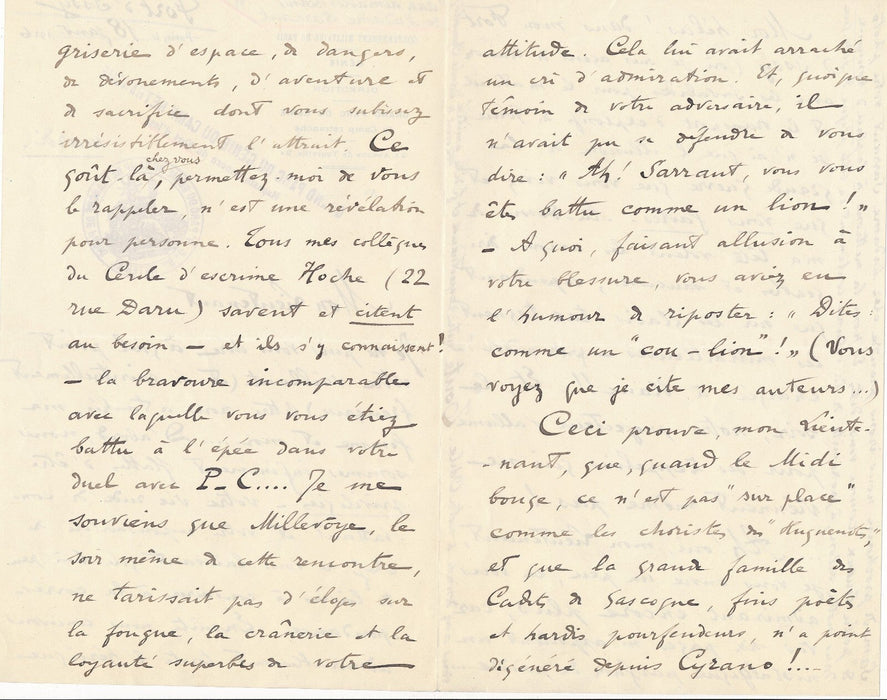 griserie d'espace, de dangers,
de dévouements, d'aventure et
de sacrifice dont vous subissez
irrésistiblement l'attrait. Ce
chez vous
goût-là, permettez-moi de vous
le rappeler, n'est une révélation
pour personne. Tous mes collègues
du Cercle d'escrime Hoche (22
rue Daru) savent et citent
au besoin — et ils s'y connaissent!
— la bravoure incomparable
avec laquelle vous vous étiez
battu à l'épée dans votre
duel avec P-C.... Je me
souviens que Millevoye, le
soir même de cette rencontre,
ne tarissait pas d'éloges sur
la fougue, la crânerie et la
loyauté superbes de votre
attitude. Cela lui avait arraché
un cri d'admiration. Et, quoique
témoin de votre adversaire, il
n'avait pu se défendre de vous
dire : « Ah! Sarraut, vous vous
êtes battu comme un lion ! »
— A quoi, faisant allusion à
votre blessure, vous aviez eu
l'humour de riposter : « Dites :
comme un "cou-lion" ! » (Vous
voyez que je cite mes auteurs...)
Ceci prouve, mon Lieute-
-nant, que, quand le Midi
bouge, ce n'est pas "sur place"
comme les choristes des "Huguenots,"
et que la grande famille des
Cadets de Gascogne, fins poètes
et hardis pourfendeurs, n'a point
dégénéré depuis Cyrano !...